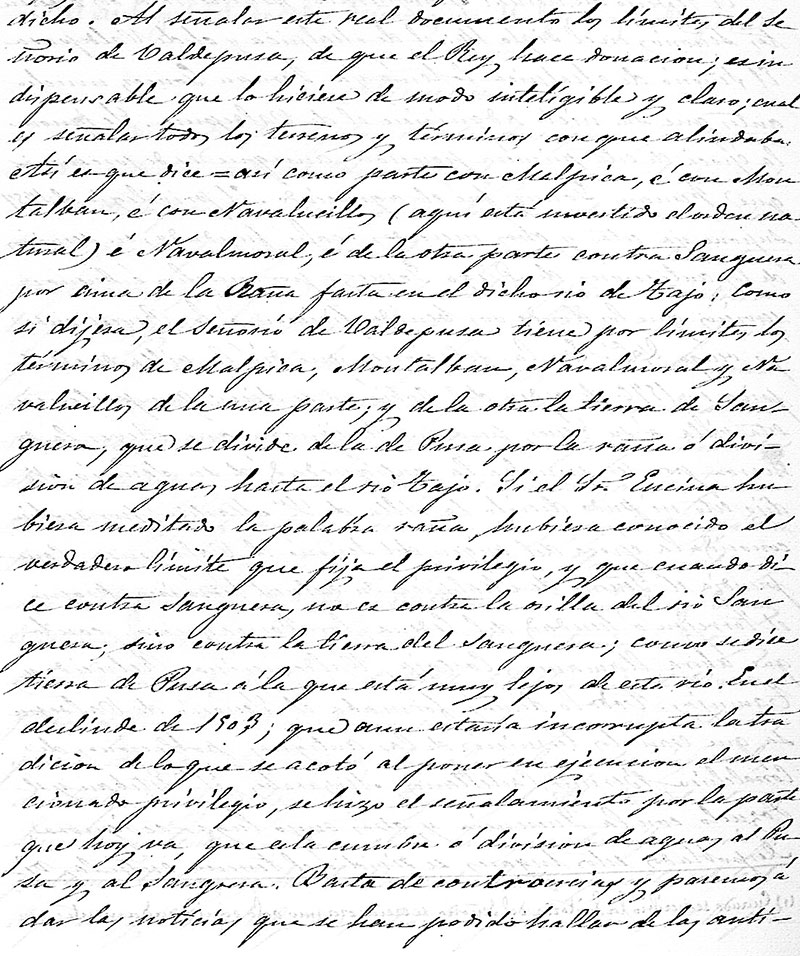 dicho. Al señalar este real documento los límites del se
ñorio de Valdepusa, de que el Rey hace donacion; es in
dispensable que lo hiciese de modo inteligible y claro; cual
es señalar todos los terrenos y términos con que alindaba.
Así es que dice = así como parte con Malpica, é con Mon
talban, é con Navalucillos (aquí está invertido el orden na-
tural) é Navalmoral, é de la otra parte contra Sanguera
por cima de la Raña fasta en el dicho rio de Tajo; como
si dijera, el Señorio de Valdepusa tiene por límites los
términos de Malpica, Montalban, Navalmoral y Na
valucillos de la una parte; y de la otra la tierra de San-
guera, que se divide de la de Pusa por la raña ó divi-
sion de aguas hasta el rio Tajo. Si el Sr. Encina hu
biera meditado la palabra raña, hubiera conocido el
verdadero límite que fija el privilegio, y que cuando di
ce contra Sanguera, no es contra la orilla del rio San
guera, sino contra la tierra del Sanguera; como se dice
tierra de Pusa á la que está muy lejos de este rio. En el
deslinde de 1503; que aun estaría incorrupta la tra
dicion de lo que se acotó al poner en ejecucion el men
cionado privilegio, se hizo el señalamiento por la parte
que hoy va, que es la cumbre ó division de aguas al Pu
sa y al Sanguera. Basta de controversias y pasemos á
dar las noticias que se han podido hallar de las anti-